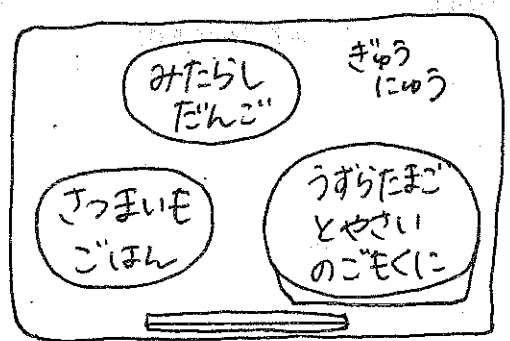 みたらし
だんご
ぎゅう
にゅう
さつまいも
ごはん
うずらたまご
とやさい
のごもくに